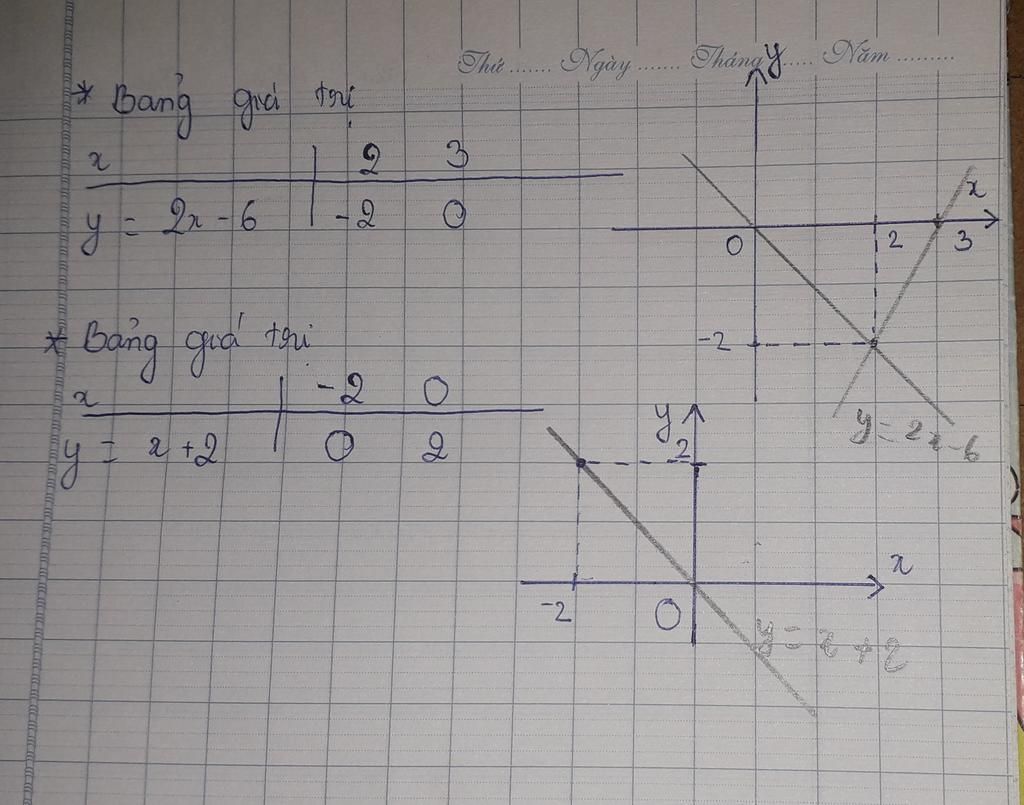 Thứ ....... Ngày ....... Tháng ..... Năm .........
* Bảng giá trị
x | 2 3
y = 2x - 6 | -2 0
y
x
0 2 3
-2
y = 2x - 6
* Bảng giá trị
x | -2 0
y = x + 2 | 0 2
y
2
x
-2 O
y = x + 2